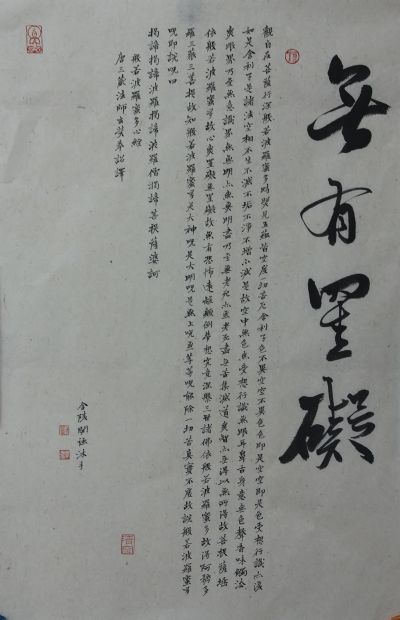 無有罣礙
觀自在菩薩行深般若波羅蜜多時照見五蘊皆空度一切苦厄舍利子色不異空空不異色色即是空空即是色受想行識亦復
如是舍利子是諸法空相不生不滅不垢不淨不增不減是故空中無色無受想行識無眼耳鼻舌身意無色聲香味觸法
無眼界乃至無意識界無無明亦無無明盡乃至無老死亦無老死盡無苦集滅道無智亦無得以無所得故菩提薩埵
依般若波羅蜜多故心無罣礙無罣礙故無有恐怖遠離顛倒夢想究竟涅槃三世諸佛依般若波羅蜜多故得阿耨多
羅三藐三菩提故知般若波羅蜜多是大神呪是大明呪是無上呪是無等等呪能除一切苦真實不虛故說般若波羅蜜多
呪即說呪曰
揭諦揭諦波羅揭諦波羅僧揭諦菩提薩婆訶
般若波羅蜜多心經
唐三藏法師玄奘奉詔譯
金陵沐手